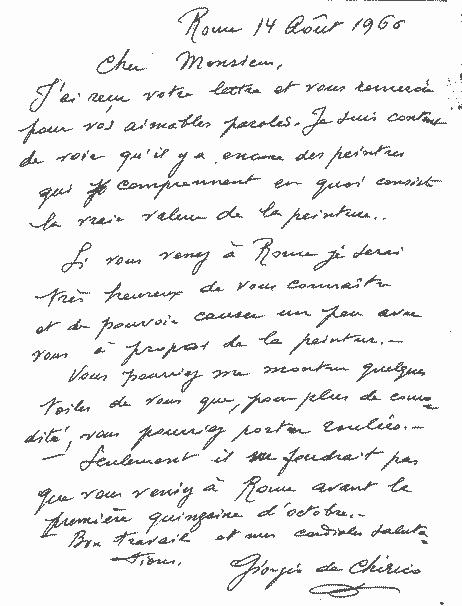 Rome 14 Août 1966
Cher Monsieur,
J'ai reçu votre lettre et vous remercie
pour vos aimables paroles. Je suis content
de voir qu'il y a encore des peintres
qui comprennent en quoi consiste
la vraie valeur de la peinture..
Si vous venez à Rome je serai
très heureux de vous connaître
et de pouvoir causer un peu avec
vous à propos de la peinture.-
Vous pourriez me montrer quelques
toiles de vous que, pour plus de como-
dité, vous pourriez porter roulées.-
- Seulement il ne faudrait pas
que vous veniez à Rome avant la
première quinzaine d'octobre.-
Bon travail et mes cordiales saluta-
tions.
Giorgio de Chirico